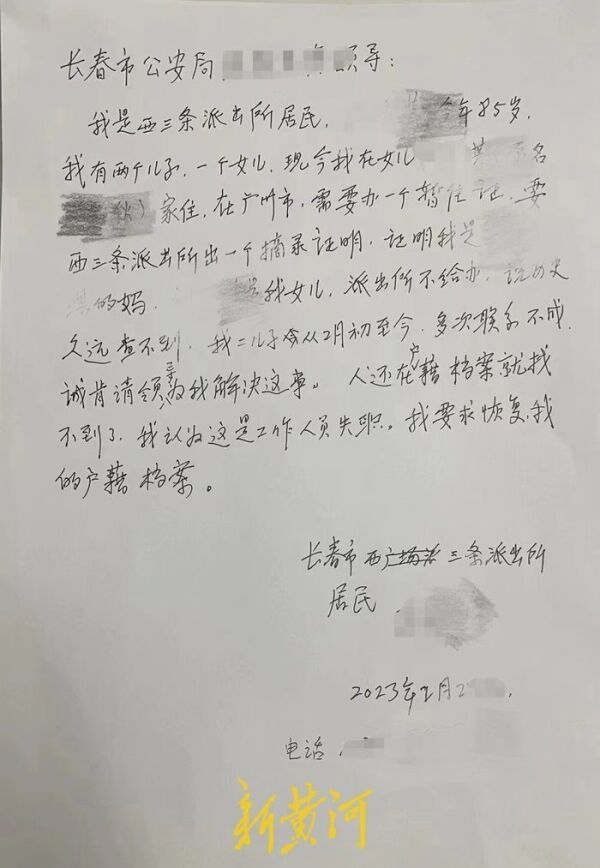 长春市公安局 领导：
我是西三条派出所居民， 今年85岁，
我有两个儿子，一个女儿，现今我在女儿 名
家住，在广州市，需要办一个暂住证，要
西三条派出所出一个摘录证明，证明我是
的妈， 是我女儿，派出所不给办，说历史
久远查不到，我二儿子从2月初至今，多次联系不成，
诚肯请领导为我解决这事。人还在户藉档案就找
不到了，我认为这是工作人员失职。我要求恢复我
的户藉档案。
长春市西 三条派出所
居民
2023年2月2
电话
新黄河